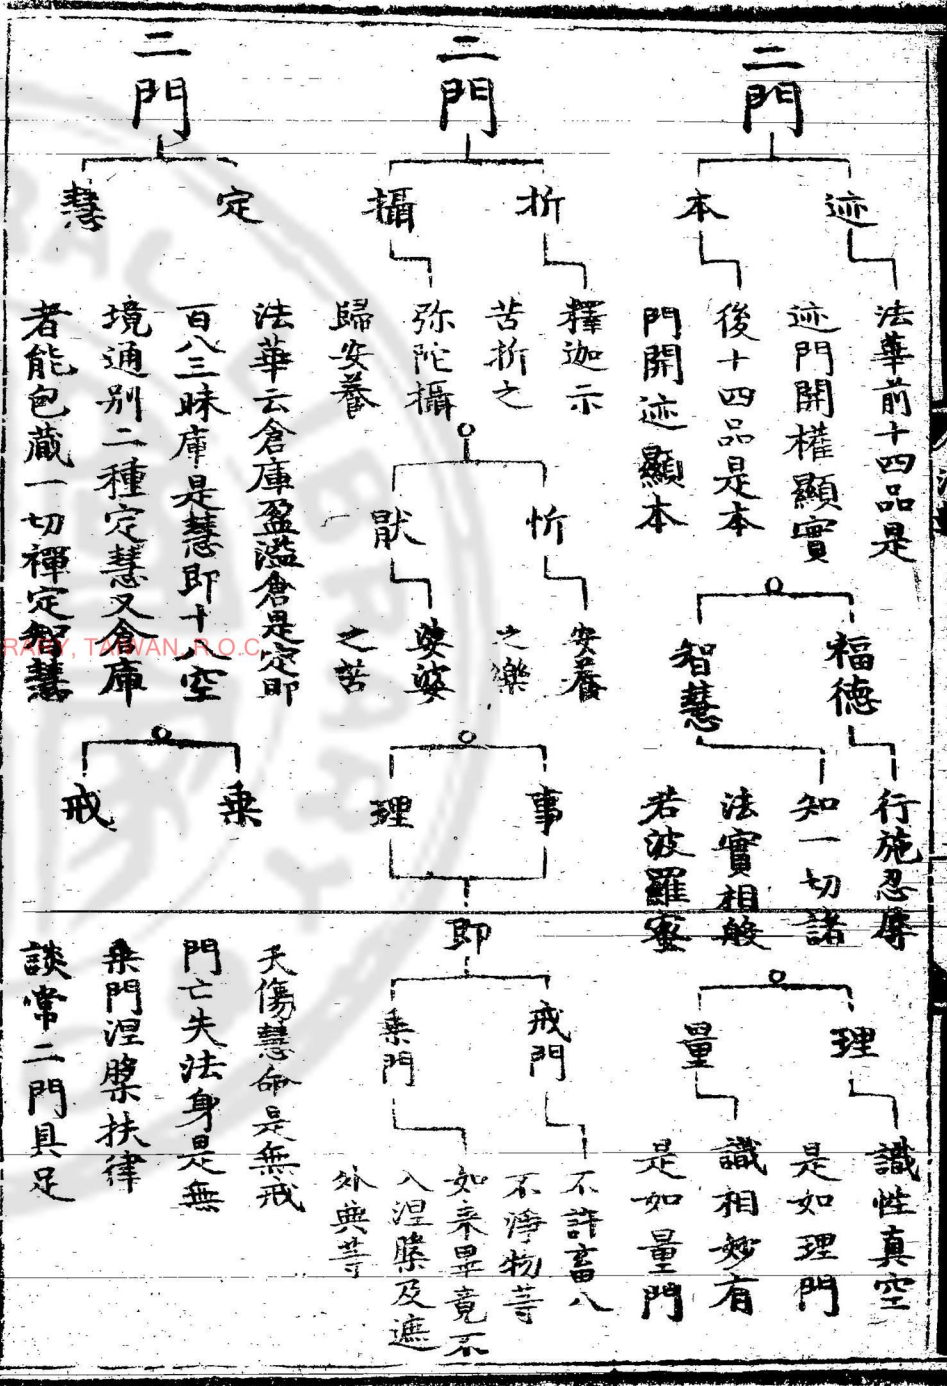 二門
迹
法華前十四品是
迹門開權顯實
本
後十四品是本
門開迹顯本
福德
行施忍辱
智慧
知一切諸
法實相般
若波羅蜜
理
識性真空
是如理門
量
識相妙有
是如量門
二門
折
釋迦示
苦折之
攝
弥陀攝
歸安養
忻
安養
之樂
猒
娑婆
之苦
事
理
即
戒門
不許畜八
不淨物等
乗門
如来畢竟不
入涅槃及遮
外典等
二門
定
慧
法華云倉庫盈溢倉是定即
百八三昧庫是慧即十八空
境通别二種定慧又倉庫
者能包蔵一切禪定智慧
乗
戒
夭傷慧命是無戒
門亡失法身是無
乗門涅槃扶律
談常二門具足
RARY, TAIWAN, R.O.C.